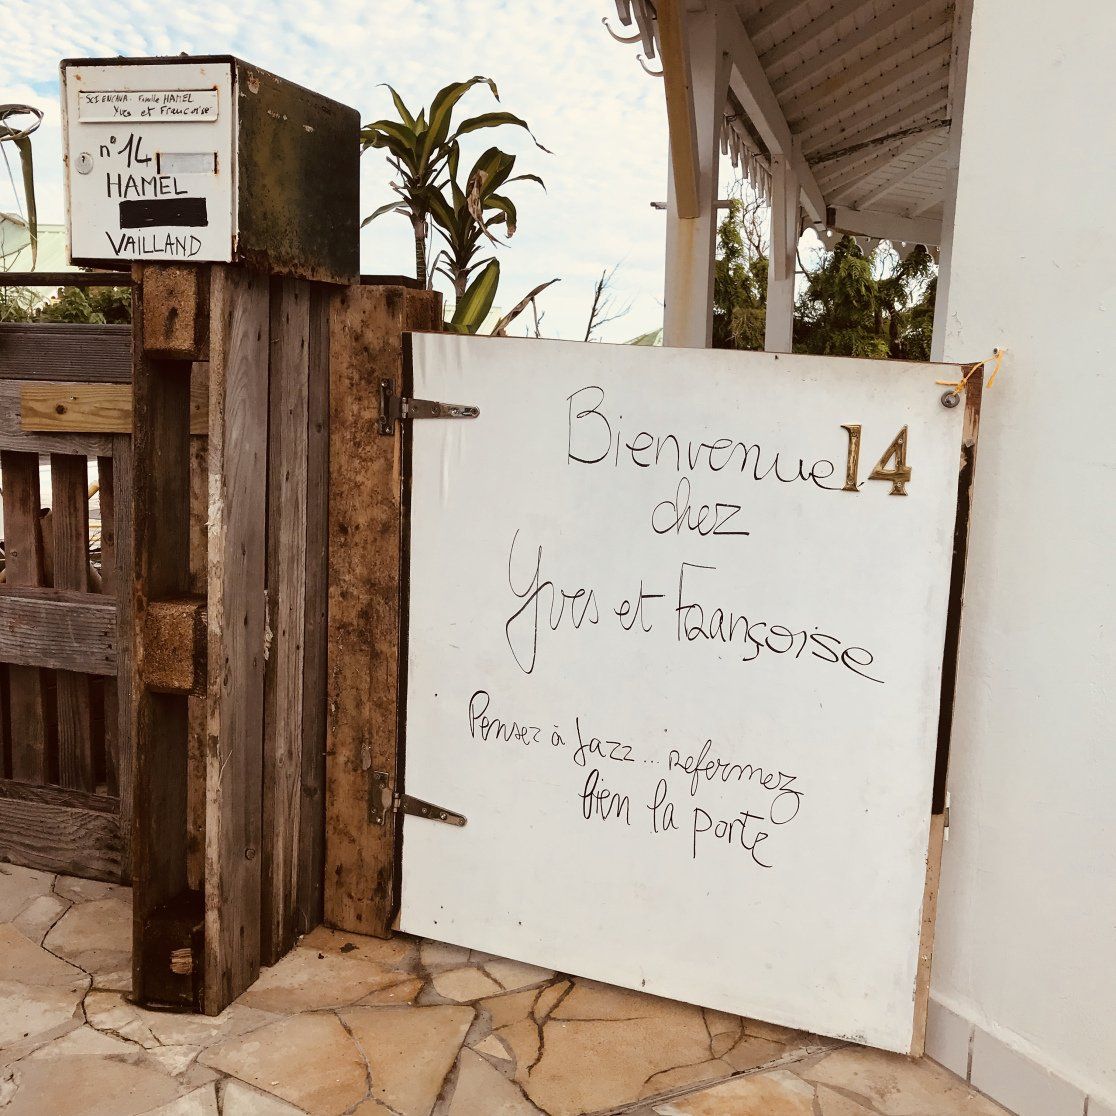 SCI ENCAVA. Famille HAMEL
Yves et Françoise
n° 14
HAMEL
VAILLAND
Bienvenue 14
chez
Yves et Françoise
Pensez à Jazz... refermez
bien la porte